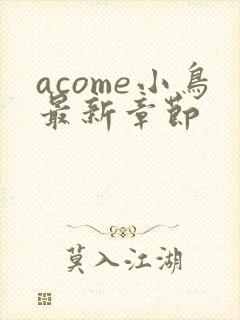 acome小鳥
最新章節
莫入江湖